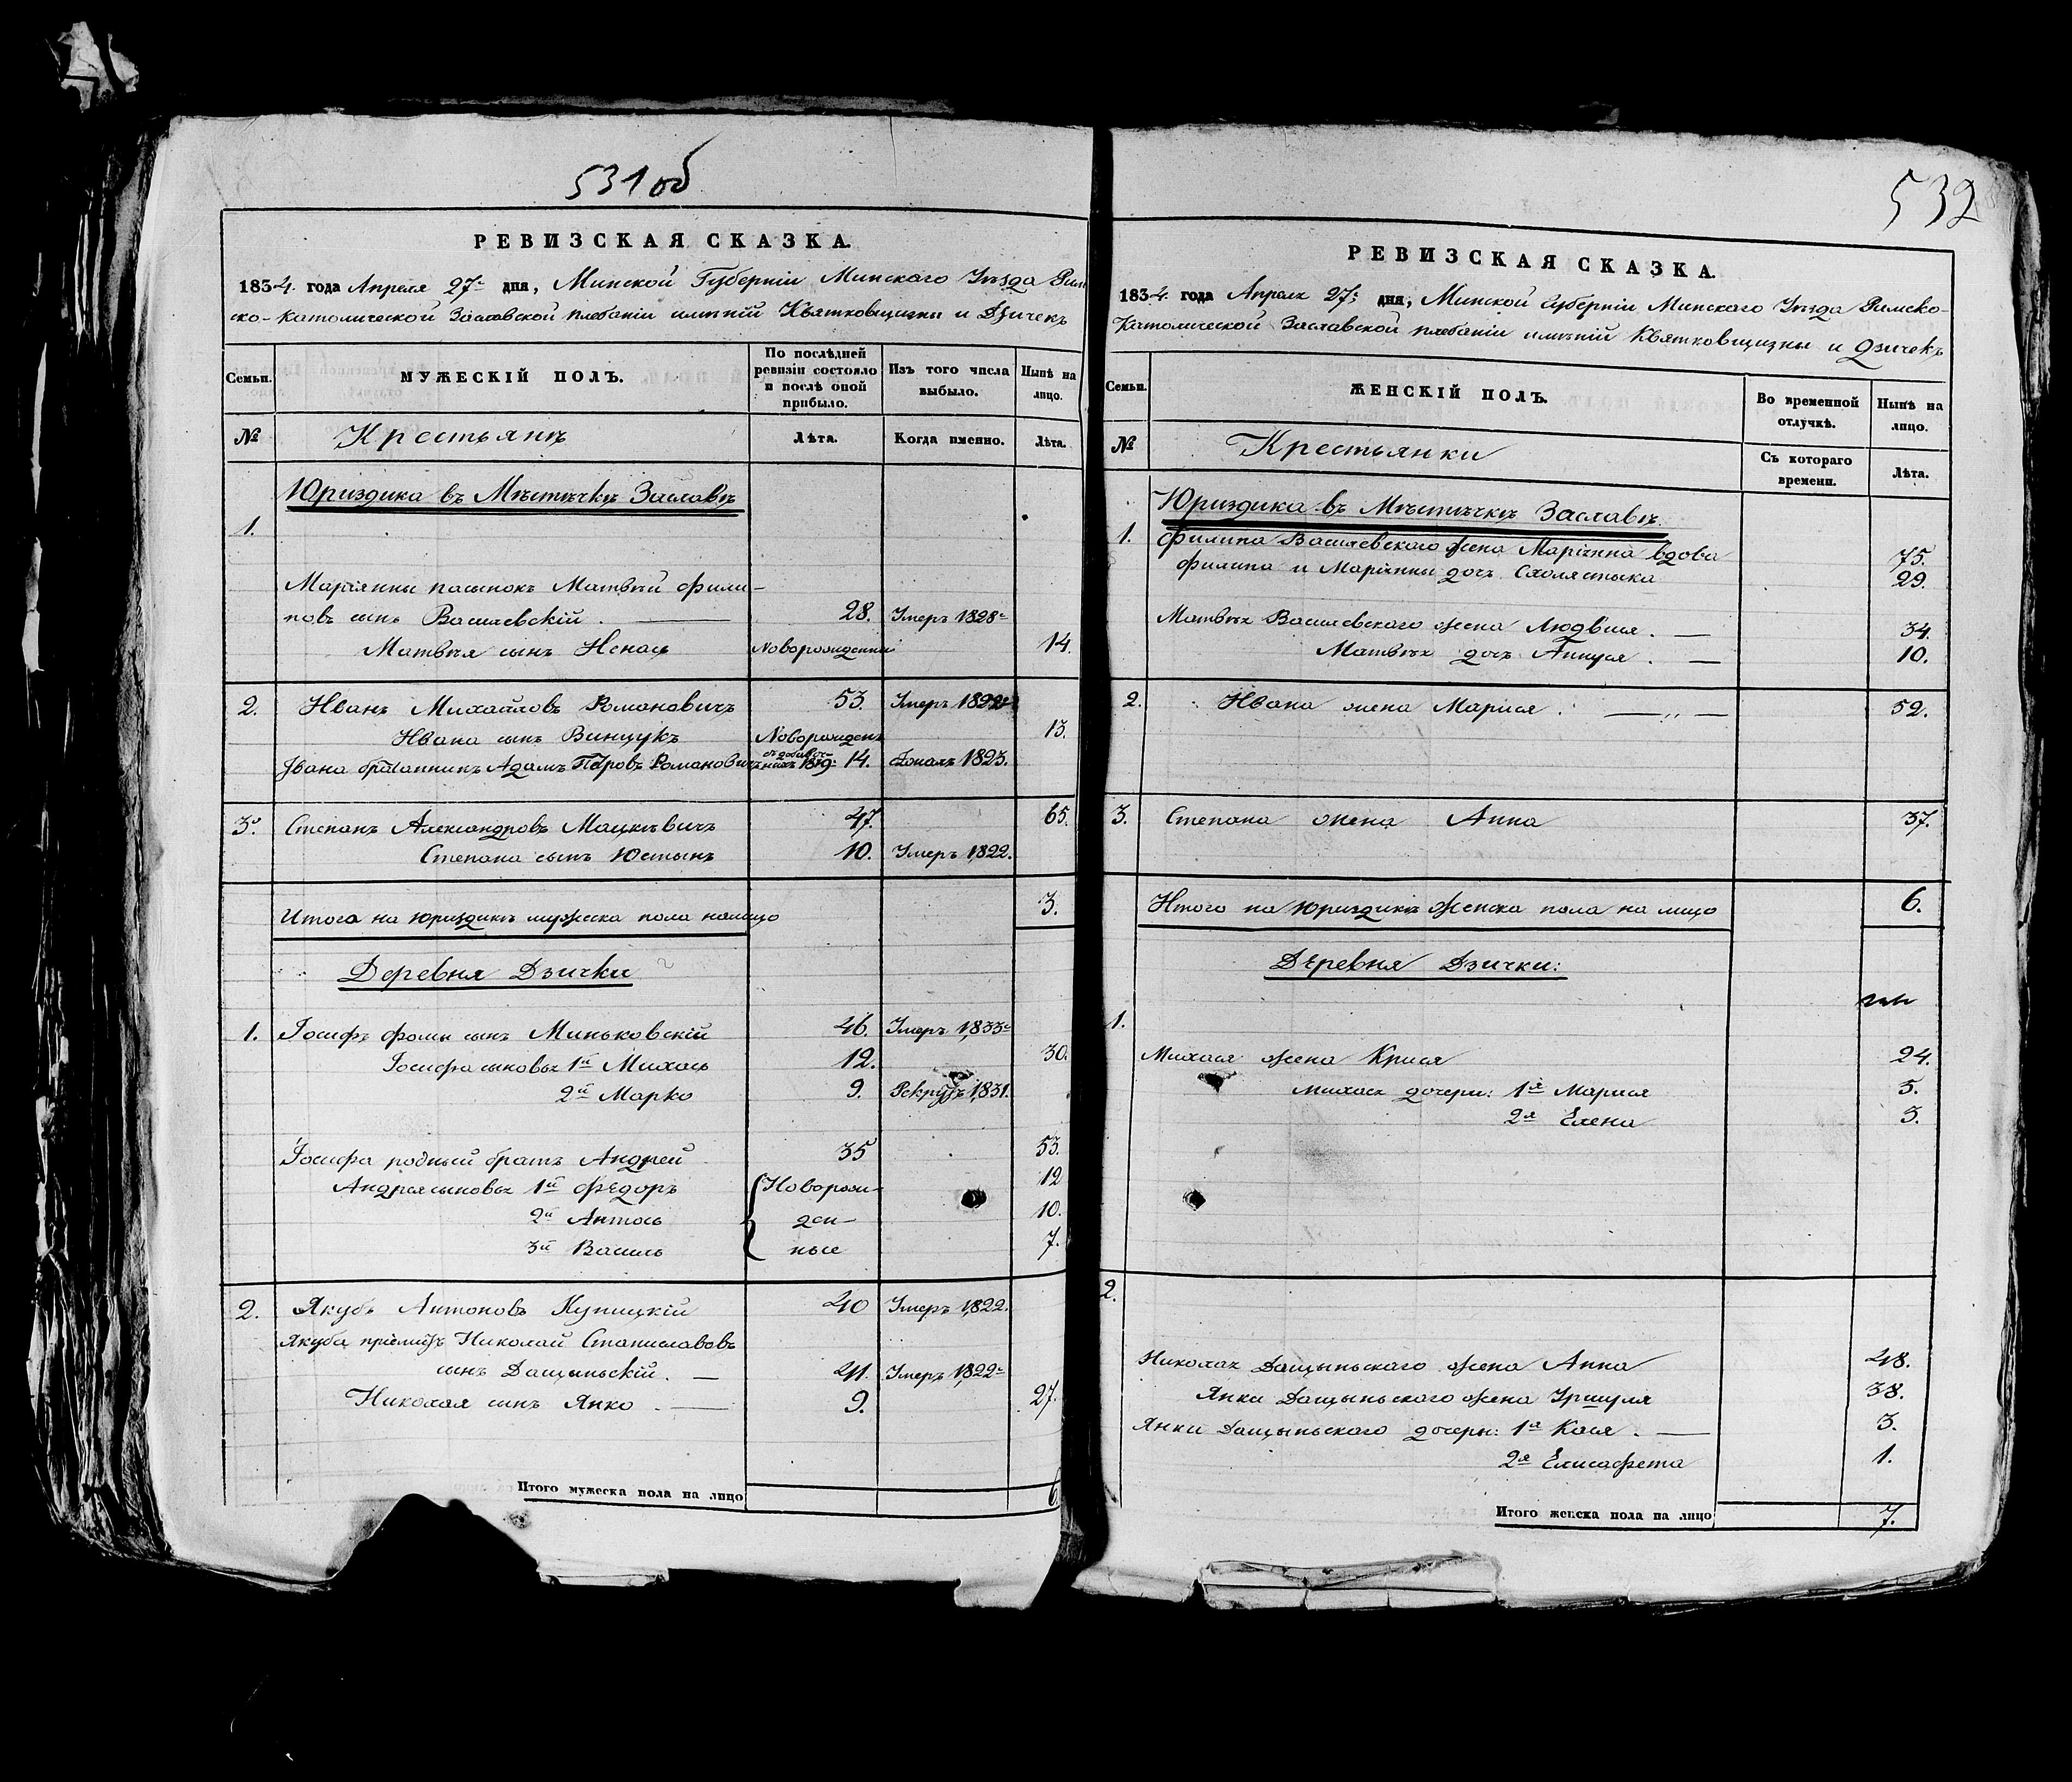 531 об
РЕВИЗСКАЯ СКАЗКА.
1834. года Апреля 27го дня, Минской Губерніи Минскаго Уѣзда Рим
ско-Католической Заславской плебаніи имѣній Квятковщизны и Дзичекъ
Семьи.
МУЖЕСКІЙ ПОЛЪ.
По послѣдней
ревизіи состояло
и послѣ оной
прибыло.
Изъ того числа
выбыло.
Нынѣ на
лицо.
№
Крестьянъ
Лѣта.
Когда именно.
Лѣта.
Юриздика въ Мѣстѣчкѣ Заславѣ
1.
Маріянны пасынокъ Матвѣй Фили-
повъ сынъ Василевскій . 28. Умеръ 1828го
Матвѣя сынъ Игнась Новорожденный 14.
2. Иванъ Михайловъ Романовичъ 53. Умеръ
Ивана сынъ Винцукъ Новорожден 13.
Ивана братанникъ Адамъ Петровъ Романовичъ 14. 1823.
3. Степанъ Александровъ Мацкѣвичъ 47. 65.
Степана сынъ Юстынъ 10. Умеръ 1822.
Итого на юриздикѣ мужеска пола налицо 3.
Деревня Дзички
1. Іосифъ Фомы сынъ Миньковскій 46. Умеръ 1833го
Іосифа сыновья 1й Михась 12. 30.
2й Марко 9. Рекрутъ 1831.
Іосифа родный братъ Андрей 35 53.
Андрея сыновья 1й Федоръ Новорож- 12
2й Антось ден- 10.
3й Василь ные 7.
2. Якубъ Антоновъ Купицкій 40 Умеръ 1822.
Якуба пріемышъ Николай Станиславовъ
сынъ Дащыньскій . 41. Умеръ 1822го
Николая сынъ Янко . 9. 27.
Итого мужеска пола на лицо 6.
532
РЕВИЗСКАЯ СКАЗКА.
1834. года Апреля 27го дня, Минской Губерніи Минскаго Уѣзда Римско-
Католической Заславской плебаніи имѣній Квятковщизны и Дзичекъ
Семьи.
ЖЕНСКІЙ ПОЛЪ.
Во временной
отлучкѣ.
Нынѣ на
лицо.
№
Крестьянки
Съ котораго
времени.
Лѣта.
Юриздика въ Мѣстѣчкѣ Заславѣ.
1. Филипа Василевскаго жена Маріянна вдова 75.
Филипа и Маріянны дочь Схолястыка 29.
Матвѣя Василевскаго жена Людвися . 34.
Матвѣя дочь Аннуся . 10.
2. Ивана жена Марися . 52.
3. Степана жена Анна 37.
Итого на юриздикѣ женска пола на лицо 6.
Деревня Дзички:
1.
Михася жена Крися 24.
Михася дочери: 1я Марися 5.
2я Елена 3.
2.
Николая Дащыньскаго жена Анна 48.
Янки Дащыньскаго жена Уршуля 38.
Янки Дащыньскаго дочеры: 1я Кася . 3.
2я Елисафета 1.
Итого женска пола на лицо 7.